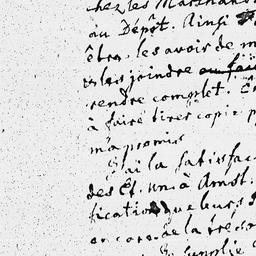 chez les Marchands
au Dépôt. Ainsi
être, les avoir de m
les joindre
rendre complet.
à faire tirer copie
m'a promis
J'ai la satisfac
des Ef. un à Amst.
fication que leurs
encore de la